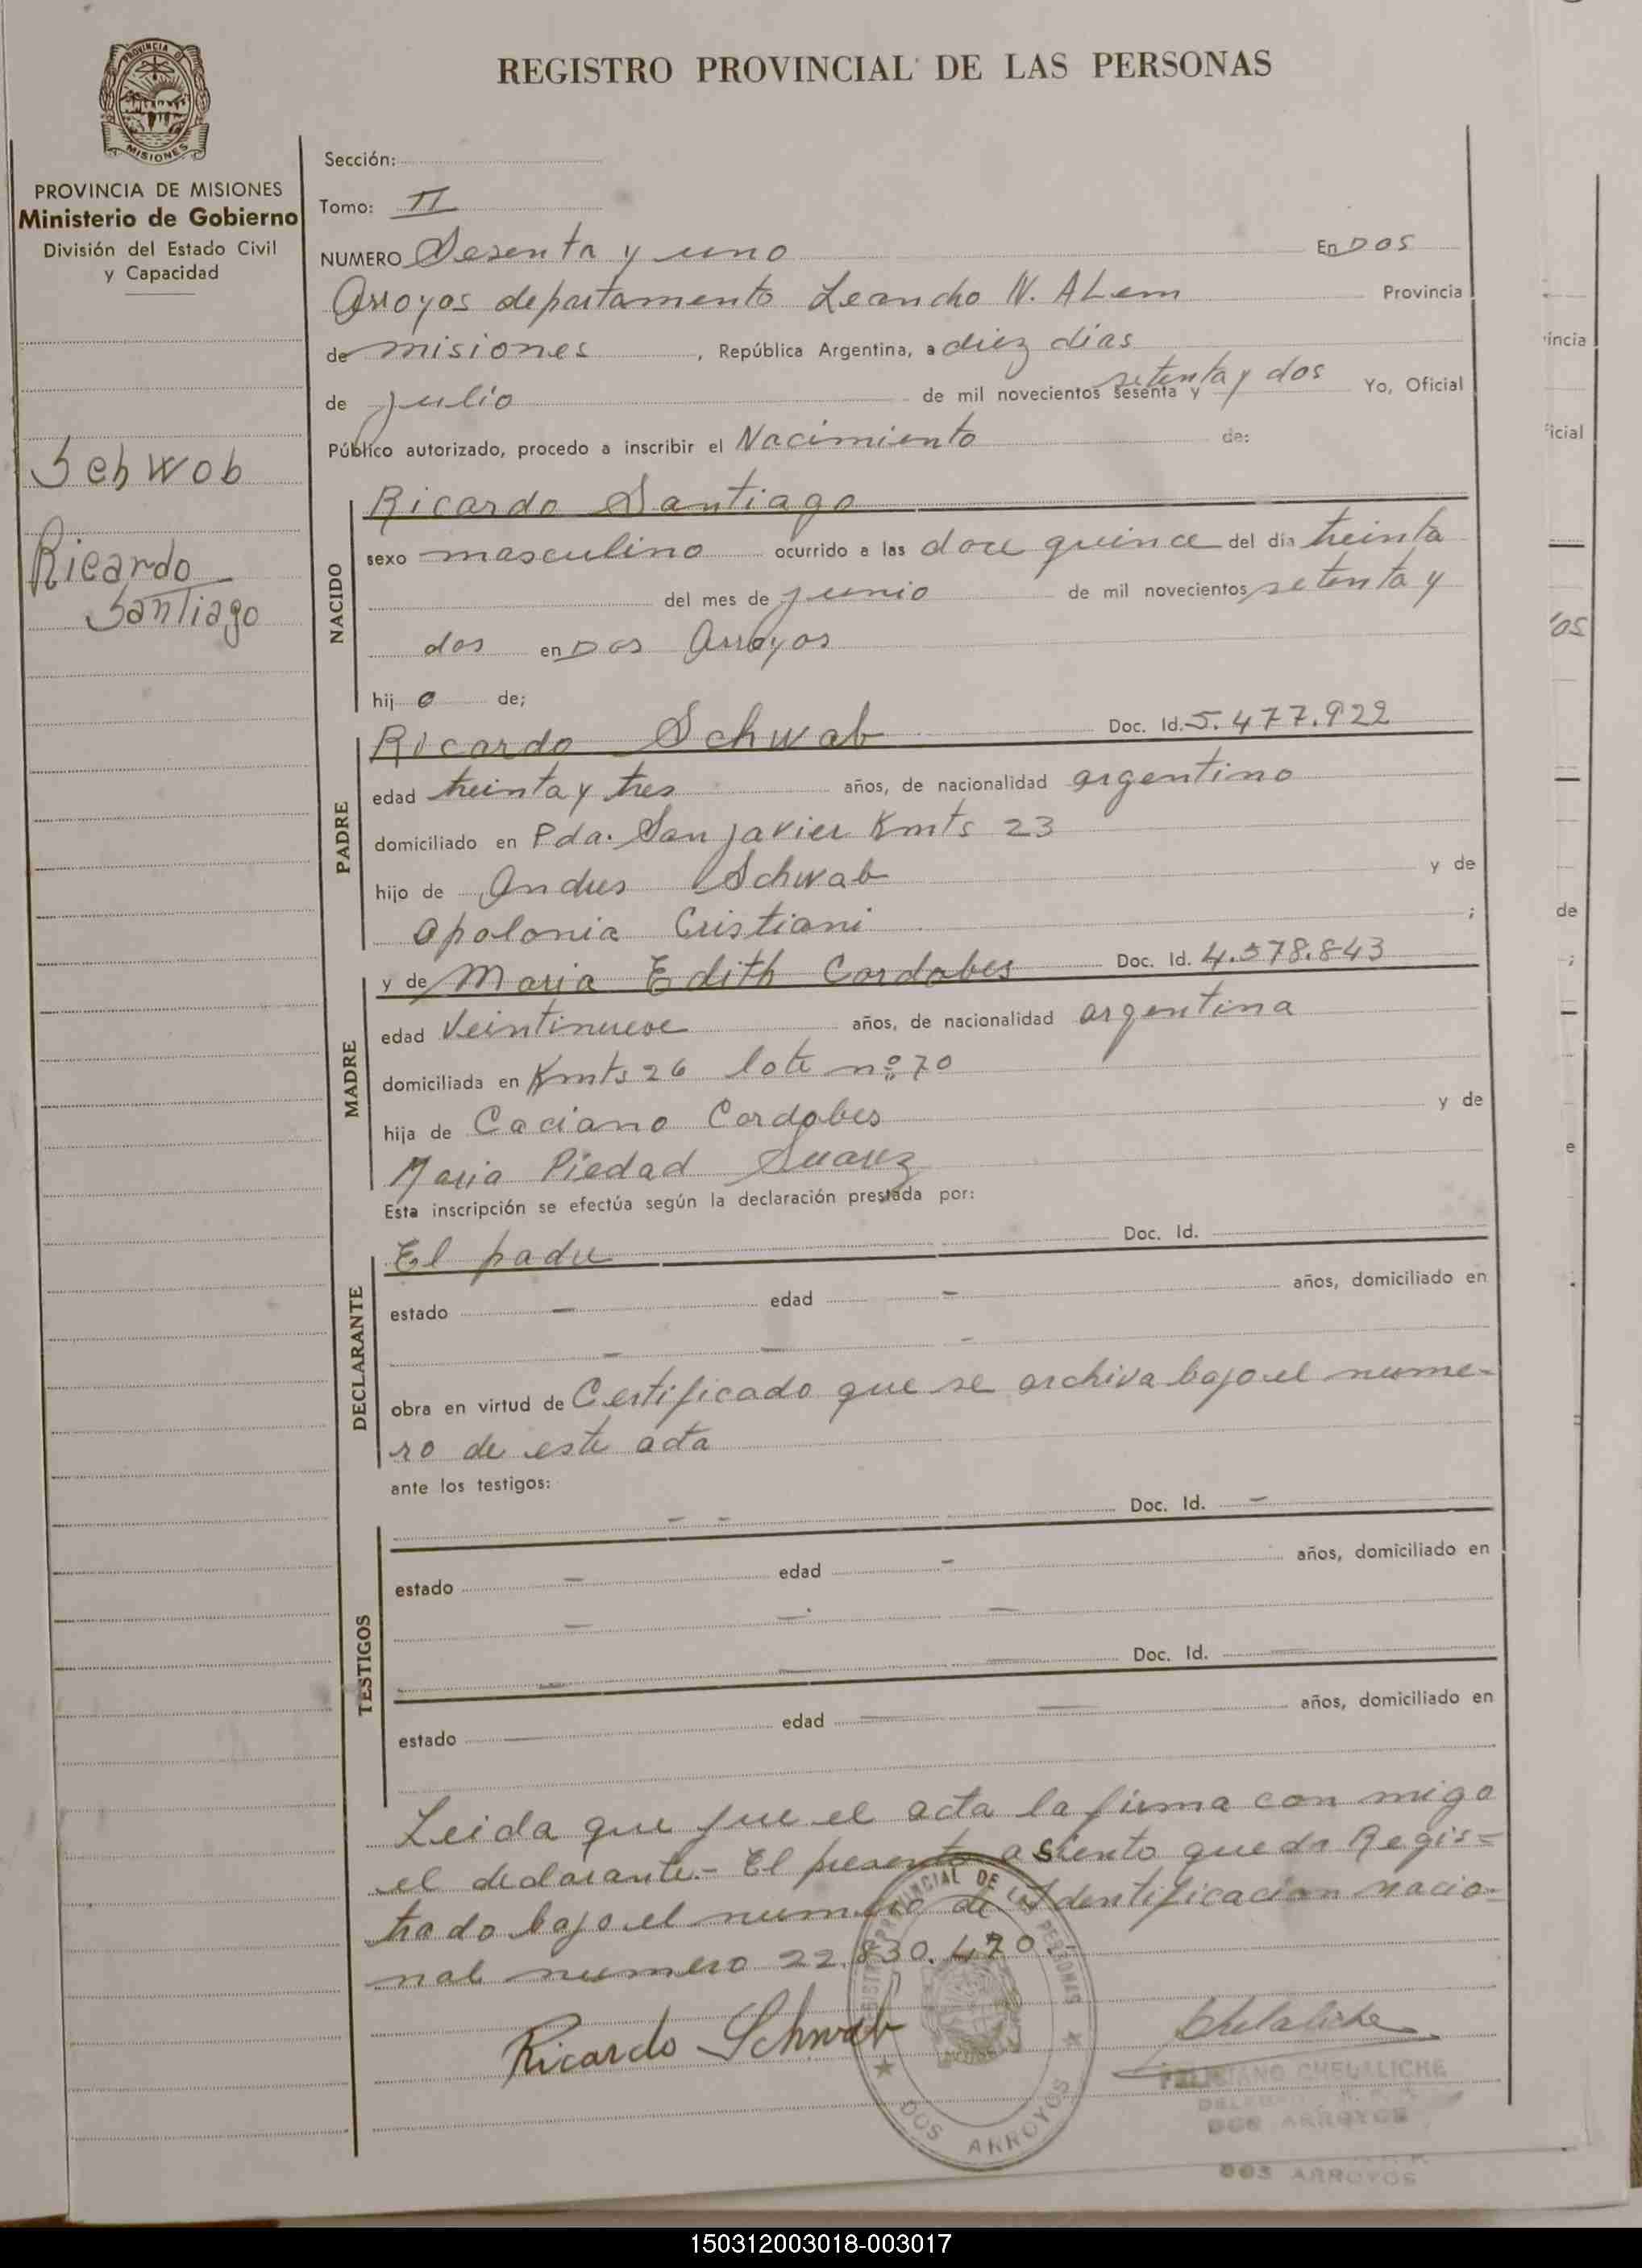 PROVINCIA DE
MISIONES
PROVINCIA DE MISIONES
Ministerio de Gobierno
División del Estado Civil
y Capacidad
Schwob
Ricardo
Santiago
REGISTRO PROVINCIAL DE LAS PERSONAS
Sección:
Tomo: II
NUMERO Sesenta y uno En Dos
Arroyos departamento Leandro N. ALem Provincia
de misiones, República Argentina, a diez días
de julio de mil novecientos sesenta y setenta y dos Yo, Oficial
Público autorizado, procedo a inscribir el Nacimiento de:
NACIDO
Ricardo Santiago
sexo masculino ocurrido a las doce quince del día treinta
del mes de junio de mil novecientos setenta y
dos en Dos Arroyos
hijo de;
PADRE
Ricardo Schwab Doc. Id. 5.477.922
edad treinta y tres años, de nacionalidad argentino
domiciliado en Pda. San Javier Kmts 23
hijo de Andres Schwab y de
Apolonia Cristiani ;
MADRE
y de Maria Edith Cordobes Doc. Id. 4.578.843
edad Veintinueve años, de nacionalidad argentina
domiciliada en Kmts 26 lote nº 70
hija de Caciano Cordobes y de
Maria Piedad Suarez
Esta inscripción se efectúa según la declaración prestada por:
DECLARANTE
El padre Doc. Id.
estado - edad - años, domiciliado en
- - -
obra en virtud de Certificado que se archiva bajo el nume-
ro de este acta
ante los testigos:
TESTIGOS
- - Doc. Id. -
estado - edad - años, domiciliado en
- - -
- - - Doc. Id. -
estado - edad - - años, domiciliado en
Leida que fue el acta la firma con migo
el declarante.- El presente asiento queda Regis=
trado bajo el numero de Identificacion nacio-
nal numero 22.830.470.-
Ricardo Schwab
REGISTRO PROVINCIAL DE LAS PERSONAS
DOS ARROYOS
Chelaliche
FELICIANO CHELALICHE
DOS ARROYOS
DOS ARROYOS
incia
icial
os
de
;
e
150312003018-003017